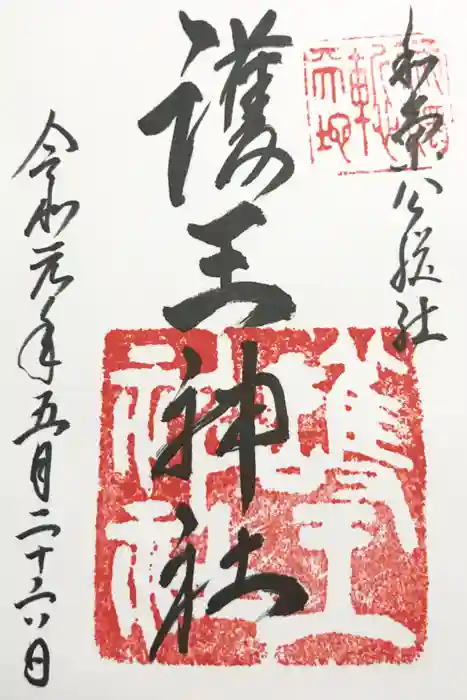 和氣公綜社
護王神社
令和元年五月二十六日
護王神社